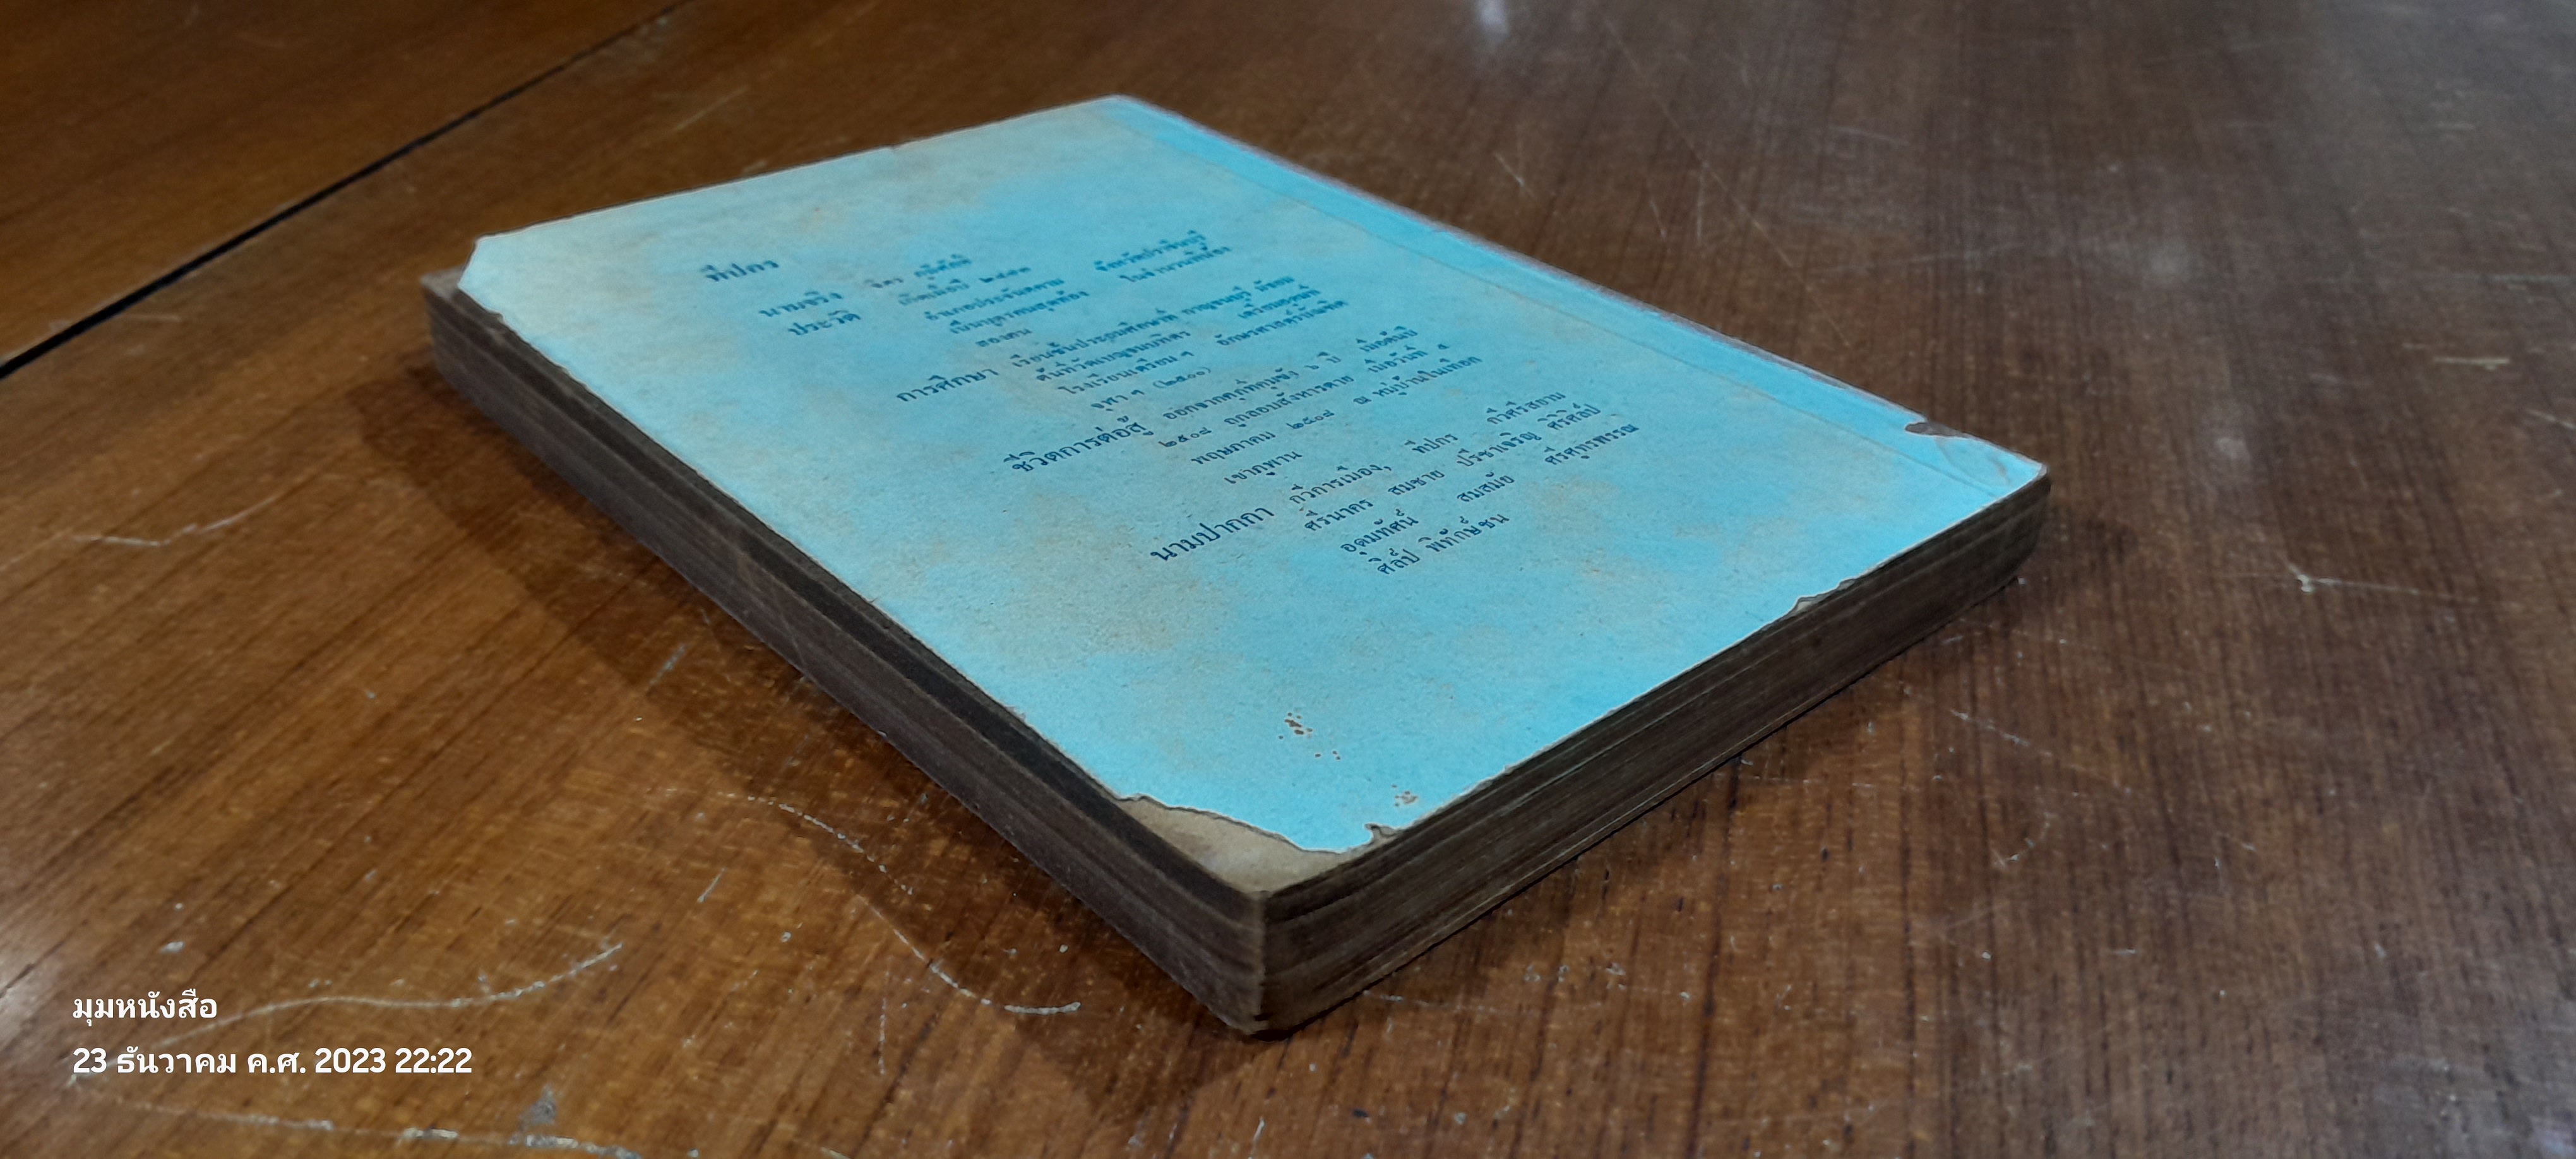 ทีปกร
นามจริง จิตร ภูมิศักดิ์
ประวัติ เกิดเมื่อปี ๒๔๗๓ จังหวัดปราจีนบุรี
อำเภอประจันตคาม ในจำนวนพี่น้อง
เป็นบุตรคนสุดท้อง
สองคน
การศึกษา เรียนชั้นประถมศึกษาที่ กาญจนบุรี มัธยม
ต้นที่วัดเบญจมบพิตร เตรียมอุดมที่
โรงเรียนเตรียม ฯ อักษรศาสตร์บัณฑิต
จุฬา ฯ (๒๕๐๐)
ชีวิตการต่อสู้ ออกจากคุก(ที่คุมขัง) ๖ ปี เมื่อต้นปี
๒๕๐๘ ถูกลอบสังหารตาย เมื่อวันที่ ๕
พฤษภาคม ๒๕๐๘ ณ หมู่บ้านในเทือก
เขาภูพาน
นามปากกา กวีการเมือง, ทีปกร กวีศรีสยาม
ศรีนาคร สมชาย ปรีชาเจริญ ศิริศิลป์
อุดมทัศน์ สมสมัย ศรีศูทรพรรณ
ศิลป์ พิทักษ์ชน
มุมหนังสือ
23 ธันวาคม ค.ศ. 2023 22:22